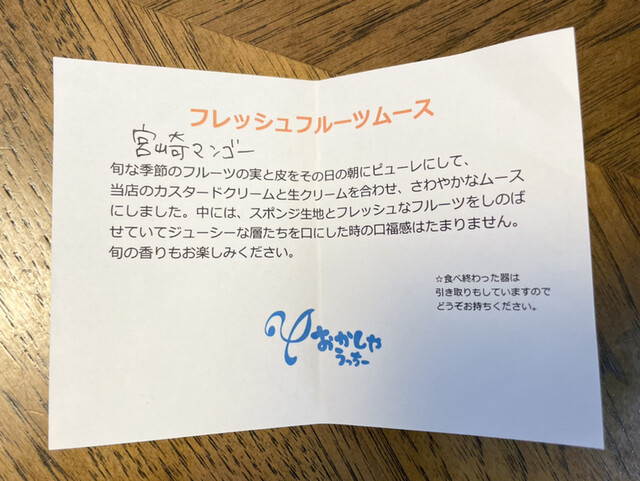 フレッシュフルーツムース
宮崎マンゴー
旬な季節のフルーツの実と皮をその日の朝にピューレにして、
当店のカスタードクリームと生クリームを合わせ、さわやかなムース
にしました。中には、スポンジ生地とフレッシュなフルーツをしのば
せていてジューシーな層たちを口にした時の口福感はたまりません。
旬の香りもお楽しみください。
☆食べ終わった器は
引き取りもしていますので
どうぞお持ちください。
おかしや
うっちー